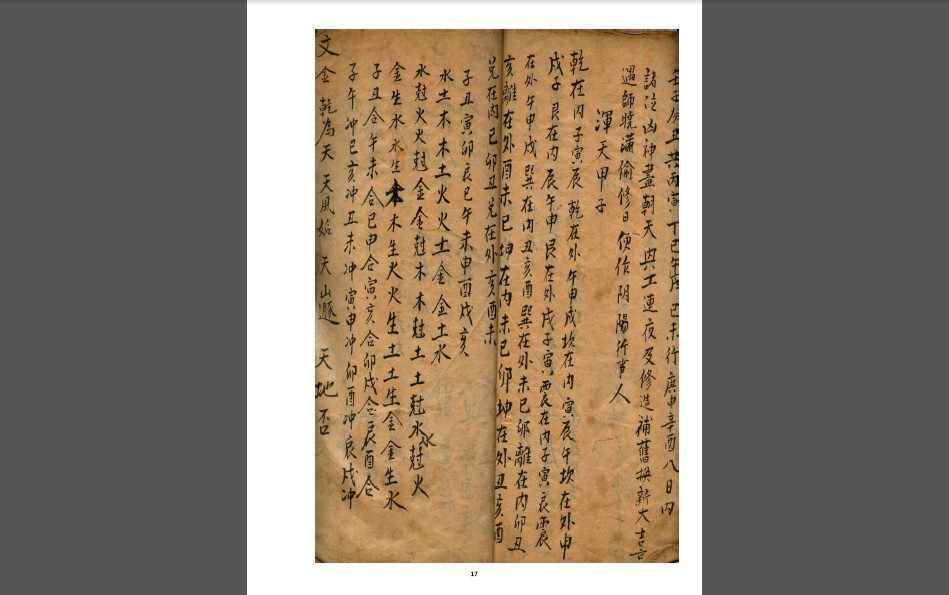 共丙寅丁巳午 己未行庚申辛酉八日内
諸位凶神盡朝天與工連夜及修造補舊換新大吉言
遇師曉滿偷修日便作阴陽行事人
渾天甲子
乾在内子寅辰 乾在外午申戌坎在内寅辰午坎在外申
戌子 艮在内辰午申艮在外戌子寅震在内子寅辰震
在外午申戌 巽在内丑亥酉巽在外未巳卯離在内卯丑
亥離在外酉未巳坤在内未巳卯坤在外丑亥酉
兑在内巳卯丑兑在外亥酉未
子丑寅卯辰巳午未申酉戌亥
水土木木土火火土金金土水
水尅火火尅金金尅木木尅土土尅水水尅火
金生水水生木木生火火生土土生金金生水
子丑合午未合巳申合寅亥合卯戌合辰酉合
子午冲巳亥冲丑未冲寅申冲卯酉冲辰戌冲
文金 乾為天 天風姤 天山遯 天地否
17